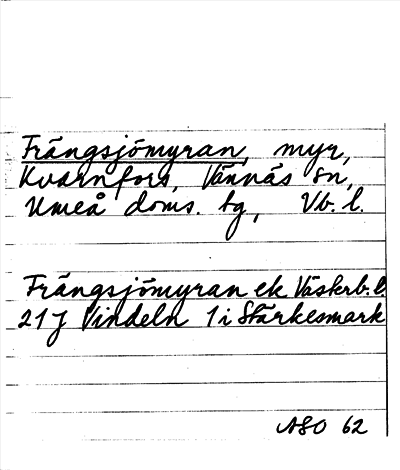 Frängsjömyran, myr,
Kvarnfors, Vännäs sn,
Umeå doms. tg, Vb. l.
Frängsjömyran ek Västerb. l
21 J Vindeln 1 i Stärkesmark
ASO 62